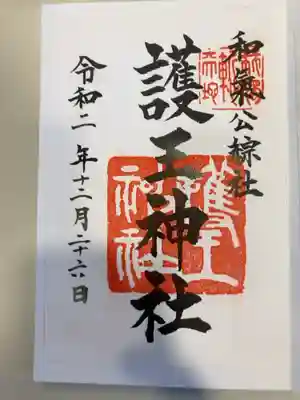 和氣公綜社
護王神社
令和二年十二月二十六日
護王
神社